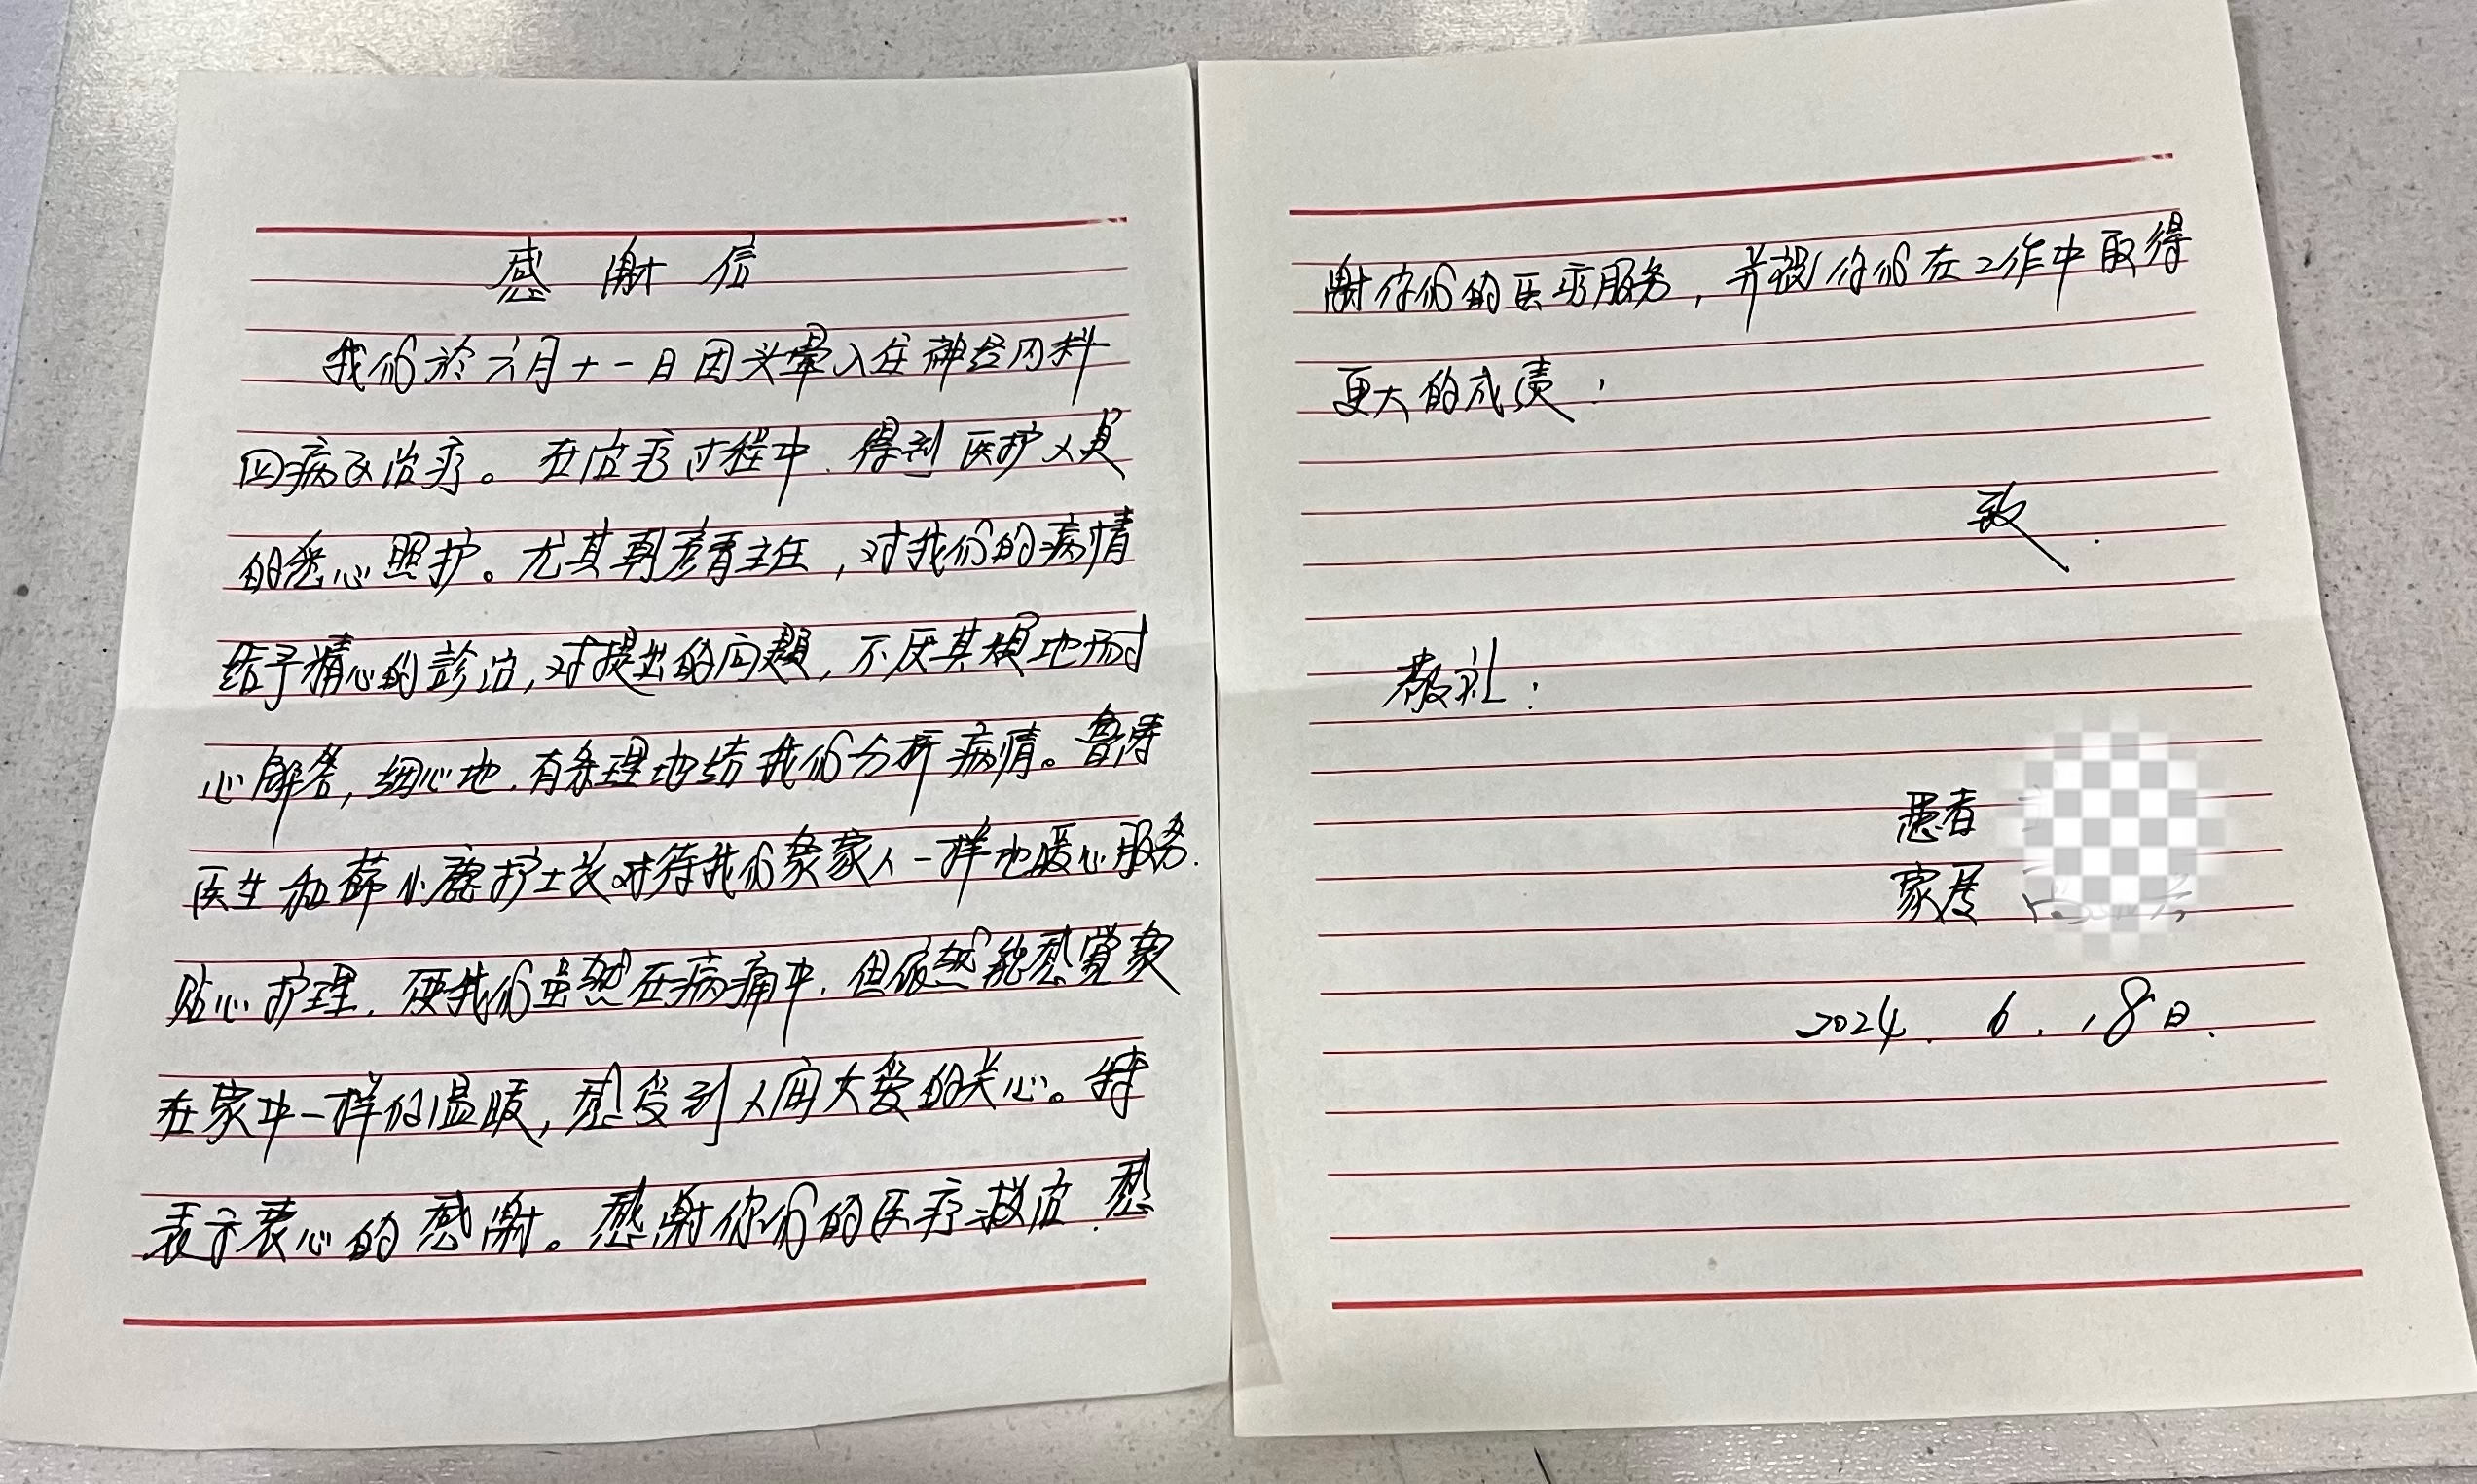 感谢信
我们於六月十一日因头晕入住神经内科
四病区治疗。在治疗过程中.得到医护人员
的悉心照护。尤其郭彦青主任,对我们的病情
给予精心的診治,对提出的问题,不厌其烦地耐
心解答,细心地.有条理地给我们分析病情。鲁涛
医生和薛小康护士长对待我们象家人一样地暖心服务.
贴心护理.使我们虽然在病痛中.但依然能感覚象
在家中一样的温暖,感受到人间大爱的关心。特
表示衷心的感谢。感谢你们的医疗救治.感
谢你们的医疗服务,并祝你们在工作中取得
更大的成绩!
致.
敬礼!
患者
家属
2024. 6. 18日.